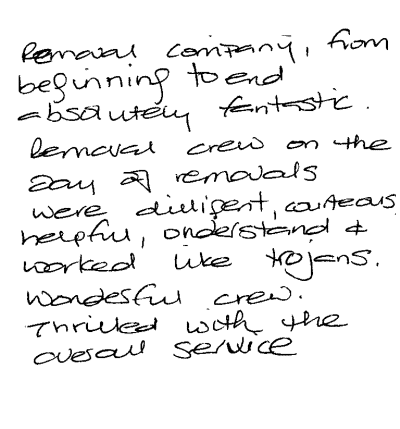 Removal company, from
beginning to end
absolutely fantastic.
Removal crew on the
Day of removals
were dilligent, courteous,
helpful, understand &
worked like trojans.
Wonderful crew.
Thrilled with the
overall service